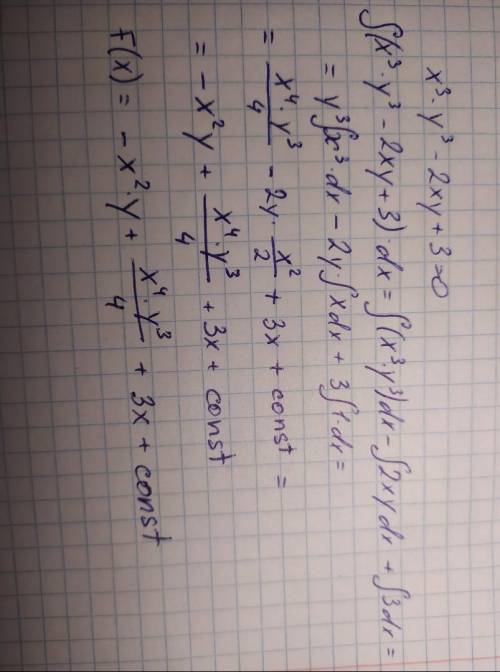 x³·y³ - 2xy + 3 = 0
∫(x³·y³ - 2xy + 3)·dx = ∫(x³·y³)dx - ∫2xy dx + ∫3dx =
= y³∫x³·dx - 2y·∫xdx + 3∫1·dx =
= x⁴·y³/4 - 2y·x²/2 + 3x + const =
= - x²y + x⁴·y³/4 + 3x + const
F(x) = - x²·y + x⁴·y³/4 + 3x + const